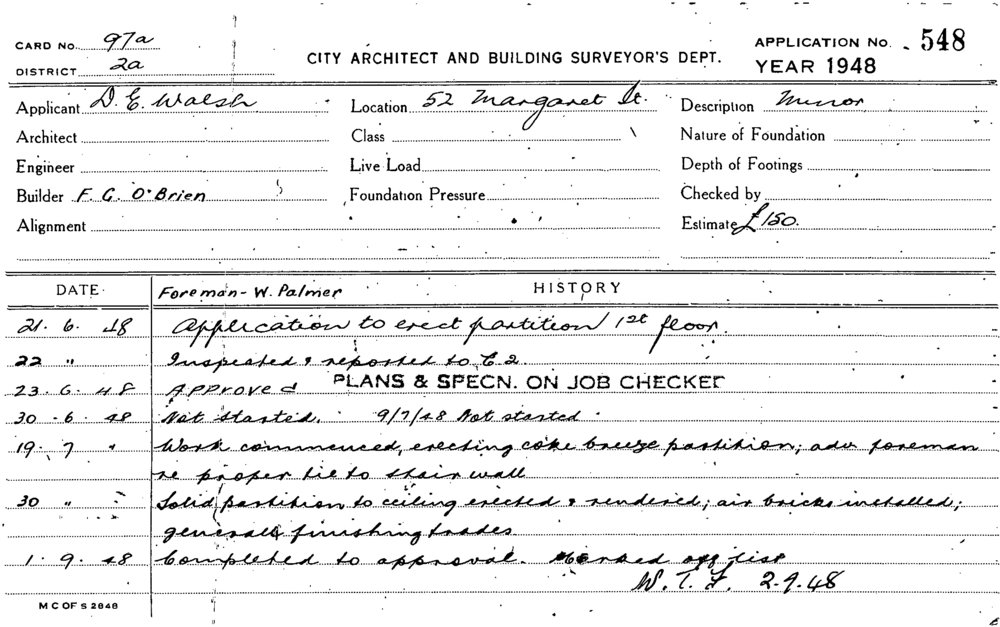 CARD No. 97a
DISTRICT 2a
CITY ARCHITECT AND BUILDING SURVEYOR'S DEPT.
APPLICATION No. 548
YEAR 1948
Applicant D. E. Walsh Location 52 Margaret St. Description Minor
Architect Class Nature of Foundation
Engineer Live Load Depth of Footings
Builder F. G. O'Brien Foundation Pressure Checked by
Alignment Estimate £150.
DATE Foreman - W. Palmer HISTORY
21. 6. 48 Application to erect partition 1st floor.
22 " Inspected & reported to C.2
23. 6. 48 Approved PLANS & SPECN. ON JOB CHECKED
30. 6. 48 Not started. 9/7/48 Not started
19. 7 " Work commenced, erecting coke breeze partition; adv foreman
re proper tie to stair wall
30 " Solid partition to ceiling erected & rendered; air bricks installed;
generally finishing trades
1. 9. 48 Completed to approval. Marked off list
2.9.48
M C OF S 2848